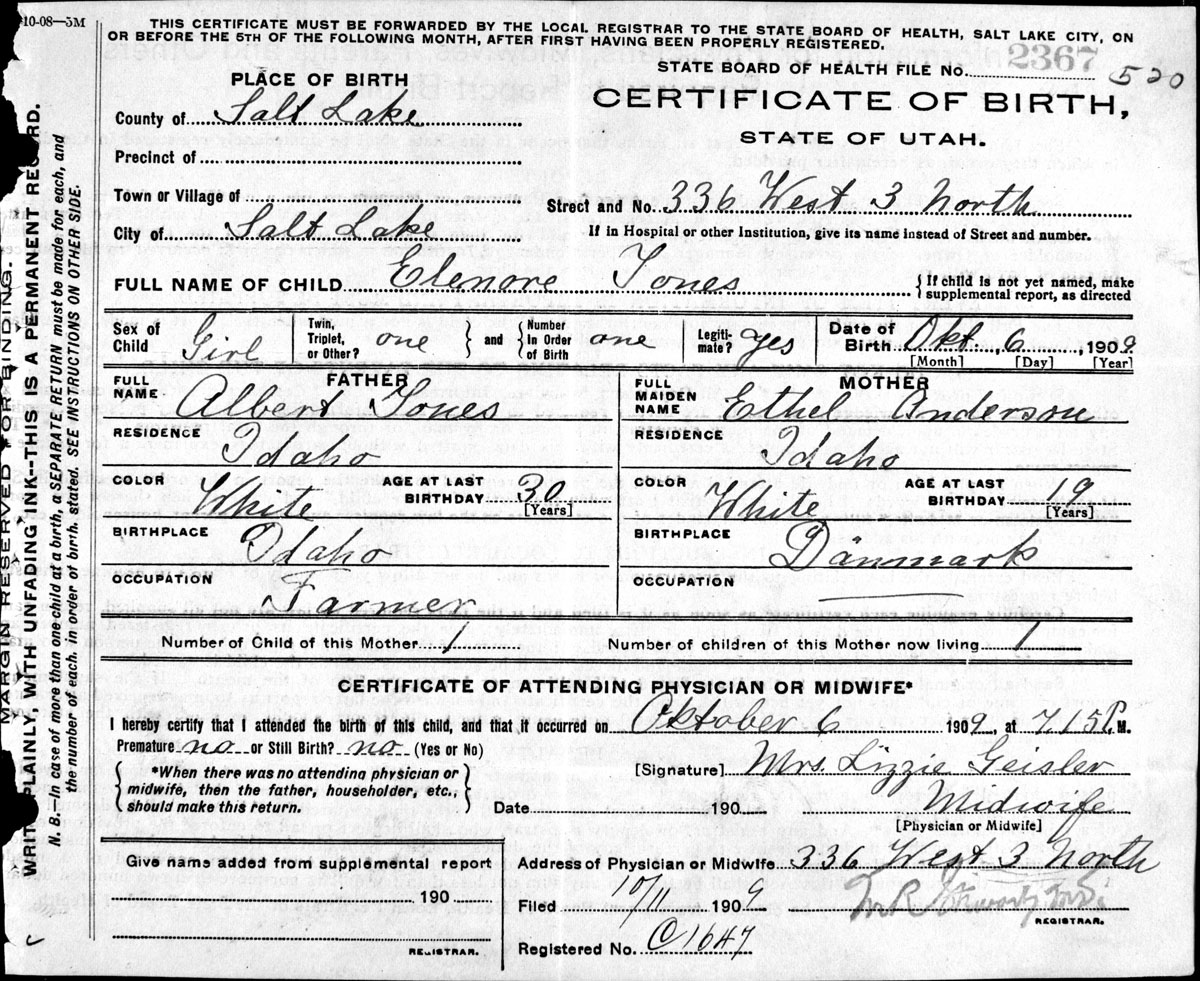 10-08—5M
THIS CERTIFICATE MUST BE FORWARDED BY THE LOCAL REGISTRAR TO THE STATE BOARD OF HEALTH, SALT LAKE CITY, ON
OR BEFORE THE 5TH OF THE FOLLOWING MONTH, AFTER FIRST HAVING BEEN PROPERLY REGISTERED.
STATE BOARD OF HEALTH FILE No. 2367 520
PLACE OF BIRTH
CERTIFICATE OF BIRTH,
STATE OF UTAH.
County of Salt Lake
Precinct of
Town or Village of
Street and No. 336 West 3 North
City of Salt Lake
If in Hospital or other Institution, give its name instead of Street and number.
FULL NAME OF CHILD Elenore Jones
{ If child is not yet named, make
supplemental report, as directed
Sex of Child Girl
Twin, Triplet, or Other? one } and { Number In Order of Birth one
Legiti-mate? yes
Date of Birth Okt. 6, 1909
[Month] [Day] [Year]
FATHER
FULL NAME Albert Jones
RESIDENCE Idaho
COLOR White AGE AT LAST BIRTHDAY 30 [Years]
BIRTHPLACE Idaho
OCCUPATION Farmer
MOTHER
FULL MAIDEN NAME Ethel Anderson
RESIDENCE Idaho
COLOR White AGE AT LAST BIRTHDAY 19 [Years]
BIRTHPLACE Dänmark
OCCUPATION
Number of Child of this Mother 1 Number of children of this Mother now living 1
CERTIFICATE OF ATTENDING PHYSICIAN OR MIDWIFE*
I hereby certify that I attended the birth of this child, and that it occurred on Oktober 6 1909, at 7 15 P. M.
Premature no or Still Birth? no (Yes or No)
{ *When there was no attending physician or
midwife, then the father, householder, etc.,
should make this return. }
[Signature] Mrs. Lizzie Geisler
Date 190 Midwife
[Physician or Midwife]
Given name added from supplemental report
190
REGISTRAR.
Address of Physician or Midwife 336 West 3 North
Filed 10/11 1909
REGISTRAR.
Registered No. C1647
MARGIN RESERVED FOR BINDING.
PLAINLY, WITH UNFADING INK--THIS IS A PERMANENT RECORD.
N. B. In case of more than one child at a birth, a SEPARATE RETURN must be made for each, and
the number of each, in order of birth, stated. SEE INSTRUCTIONS ON OTHER SIDE.